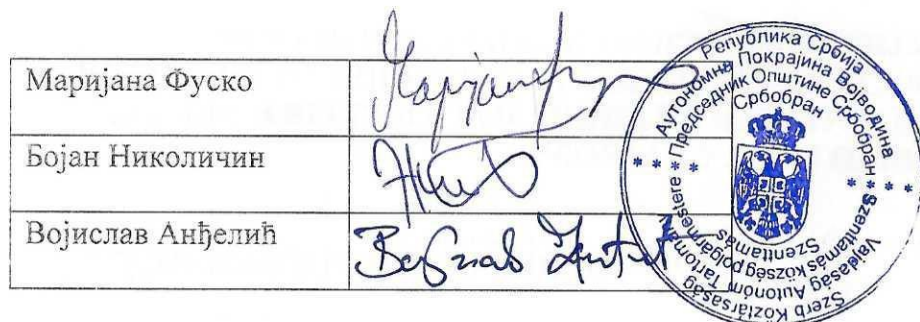 Маријана Фуско
Бојан Николичин
Војислав Анђелић
Република Србија
Аутономна Покрајина Војводина
Председник Општине Србобран
Србобран
Szerb Köztársaság
Vajdaság Autonóm Tartomány
Szenttamás község polgármestere
Szenttamás